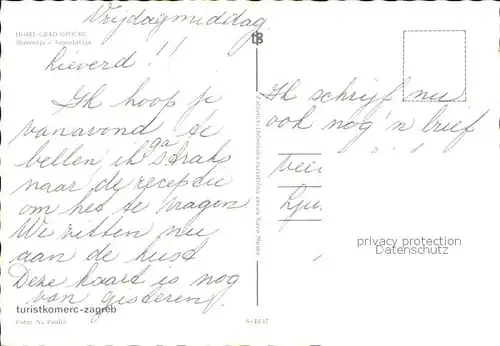 Vrijdagmiddag
HOTEL GRAD OTOČEC
Slovenija - Jugoslavija
Lieverd!!
Ik hoop je
vanavond te
bellen, ik ga straks
naar de receptie
om het te vragen
We zitten nu
aan de kust
Deze kaart is nog
van gisteren
turistkomerc-zagreb
Foto: N.
Ik schrijf nu
ook nog 'n brief
privacy protection
Datenschutz
S-1837